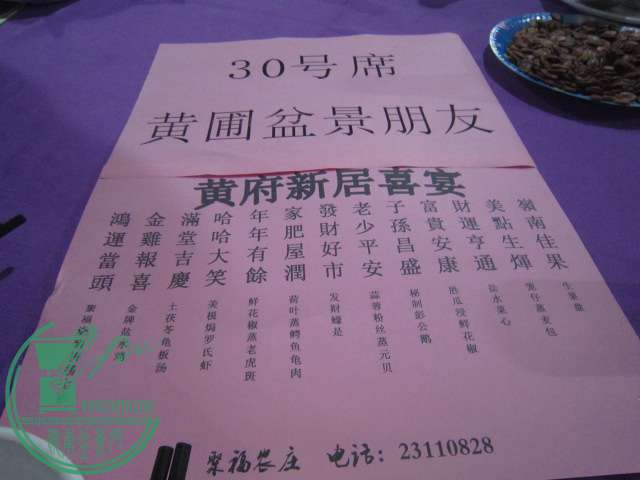 30号席
黄圃盆景朋友
黄府新居喜宴
鴻運當頭
金雞報喜
滿堂吉慶
哈哈大笑
年年有餘
家肥屋潤
發財好市
老少平安
子孫昌盛
富貴安康
財運亨通
美點生煇
嶺南佳果
金牌盐水鸡
土茯苓龟板汤
美极焗罗氏虾
鲜花椒蒸老虎斑
荷叶蒸鳄鱼龟肉
发财蠔是
蒜蓉粉丝蒸元贝
秘制彭公鹅
胜瓜浸鲜花椒
盐水菜心
笼仔蒸麦包
生果龍
聚福农庄 电话：23110828